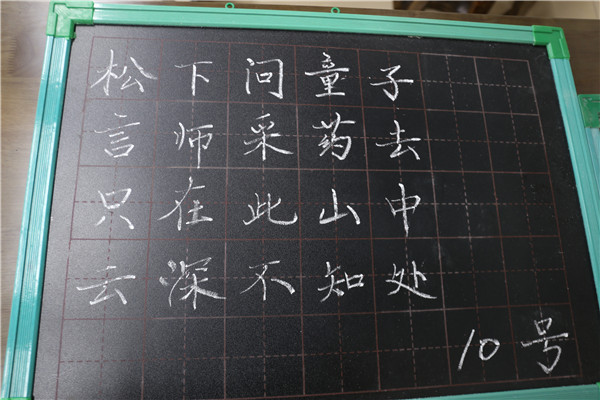 松下问童子
言师采药去
只在此山中
云深不知处
10号